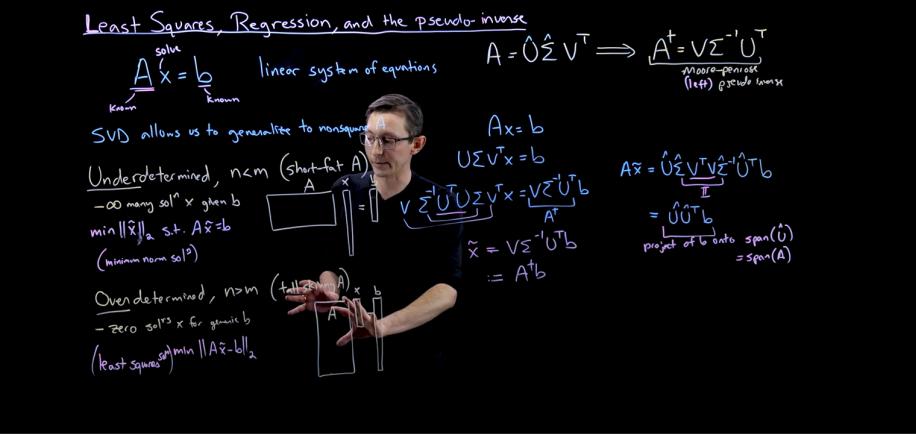 Least Squares, Regression, and the pseudo-inverse
solve
A x = b
known
known
linear system of equations
SVD allows us to generalize to nonsquare A
Underdetermined, n<m (short-fat A)
A
x
- ∞ many solⁿ x given b
min ||x̃||₂ s.t. Ax̃=b
(minimum norm solⁿ)
Overdetermined, n>m (tall skinny A)
A
x
b
- zero solⁿˢ x for generic b
(least squares solⁿ) min ||Ax̃-b||₂
A = ÛΣ̂Vᵀ ⟹ A† = VΣ⁻¹Uᵀ
Moore-penrose
(left) pseudo inverse
Ax = b
UΣVᵀx = b
VΣ⁻¹UᵀUΣVᵀx = VΣ⁻¹Uᵀb
A†
x̃ = VΣ⁻¹Uᵀb
:= A†b
Ax̃ = ÛΣ̂VᵀVΣ̂⁻¹Ûᵀb
I
= ÛÛᵀb
project of b onto span(Û)
= span(A)